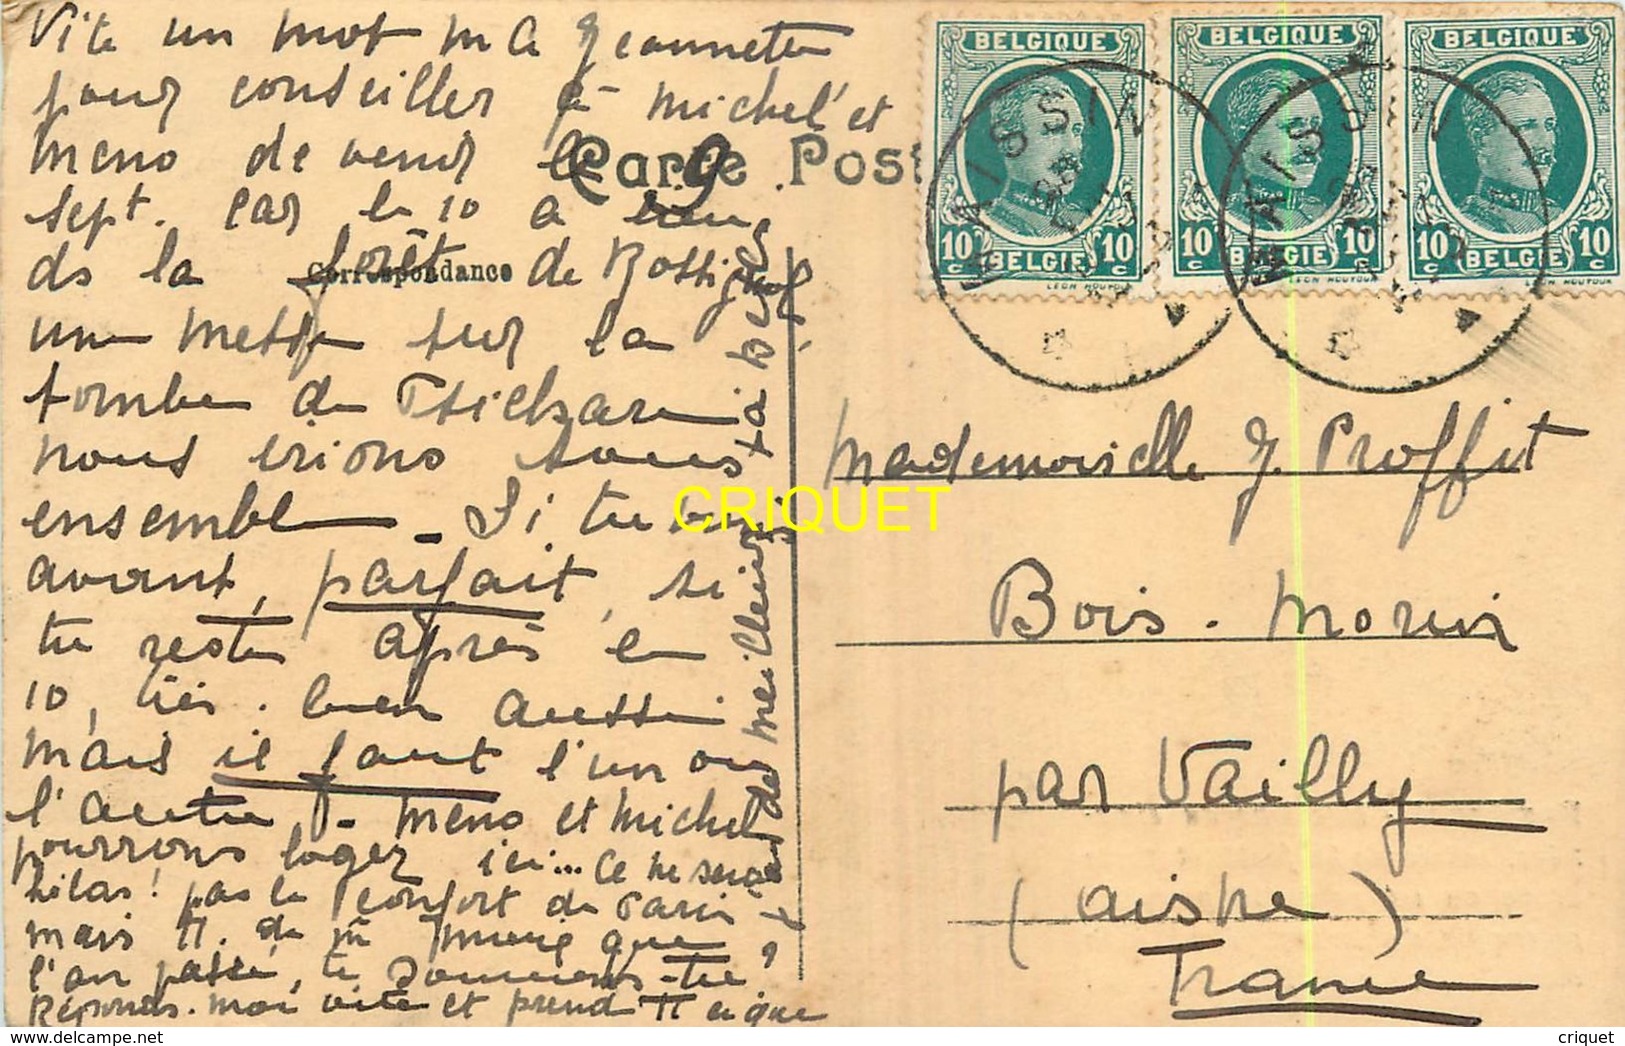 Vite un mot ma Jeannette
pour conseiller à Michel et
Meno de venir le 9
sept. car le 10 a lieu
ds la forêt de Rossignol
une messe sur la
tombe de Psichari
nous irions tous
ensemble - Si tu
avant, parfait, si
tu restes après le
10, très bien aussi
mais il faut l'un ou
l'autre - Meno et Michel
pourrons loger ici... Ce ne sera
hélas! pas le confort de Paris
mais tt. de m mieux que
l'an passé, te souviens-tu?
Réponds-moi vite et prend tt ce que
Carte Post
Correspondance
BELGIQUE
10 c 10 c
BELGIE
LEON HOUYOUX
BELGIQUE
10 c 10 c
BELGIE
LEON HOUYOUX
BELGIQUE
10 c 10 c
BELGIE
LEON HOUYOUX
MAISSIN
MAISSIN
Mademoiselle J. Proffit
Bois-Morin
par Vailly
(Aisne)
France
CRIQUET
criquet